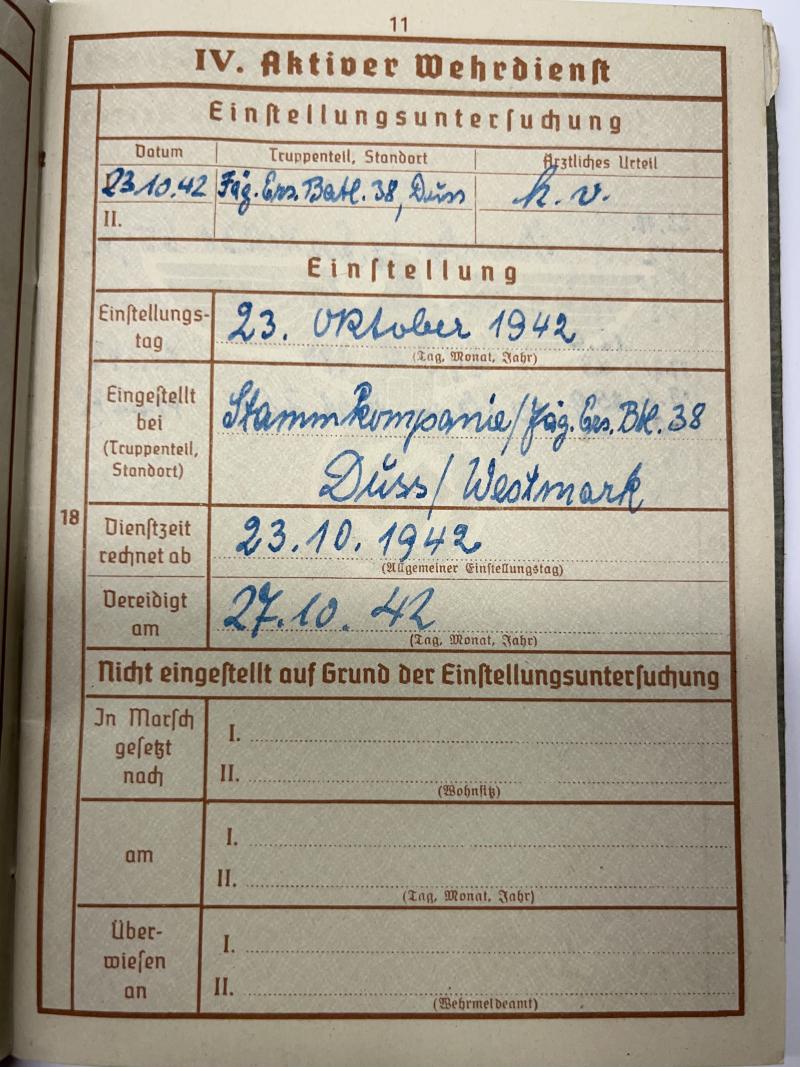 11
IV. Aktiver Wehrdienst
Einstellungsuntersuchung
Datum Truppenteil, Standort Ärztliches Urteil
23.10.42 Jäg. Ers. Batl. 38, Duss k. v.
II.
Einstellung
Einstellungs-
tag
23. Oktober 1942
(Tag, Monat, Jahr)
Eingestellt
bei
(Truppenteil,
Standort)
Stammkompanie/Jäg. Ers. Btl. 38
Duss/Westmark
18
Dienstzeit
rechnet ab
23.10.1942
(Allgemeiner Einstellungstag)
Vereidigt
am
27.10.42
(Tag, Monat, Jahr)
Nicht eingestellt auf Grund der Einstellungsuntersuchung
In Marsch
gesetzt
nach
I.
II.
(Wohnsitz)
am
I.
II.
(Tag, Monat, Jahr)
Über-
wiesen
an
I.
II.
(Wehrmeldeamt)